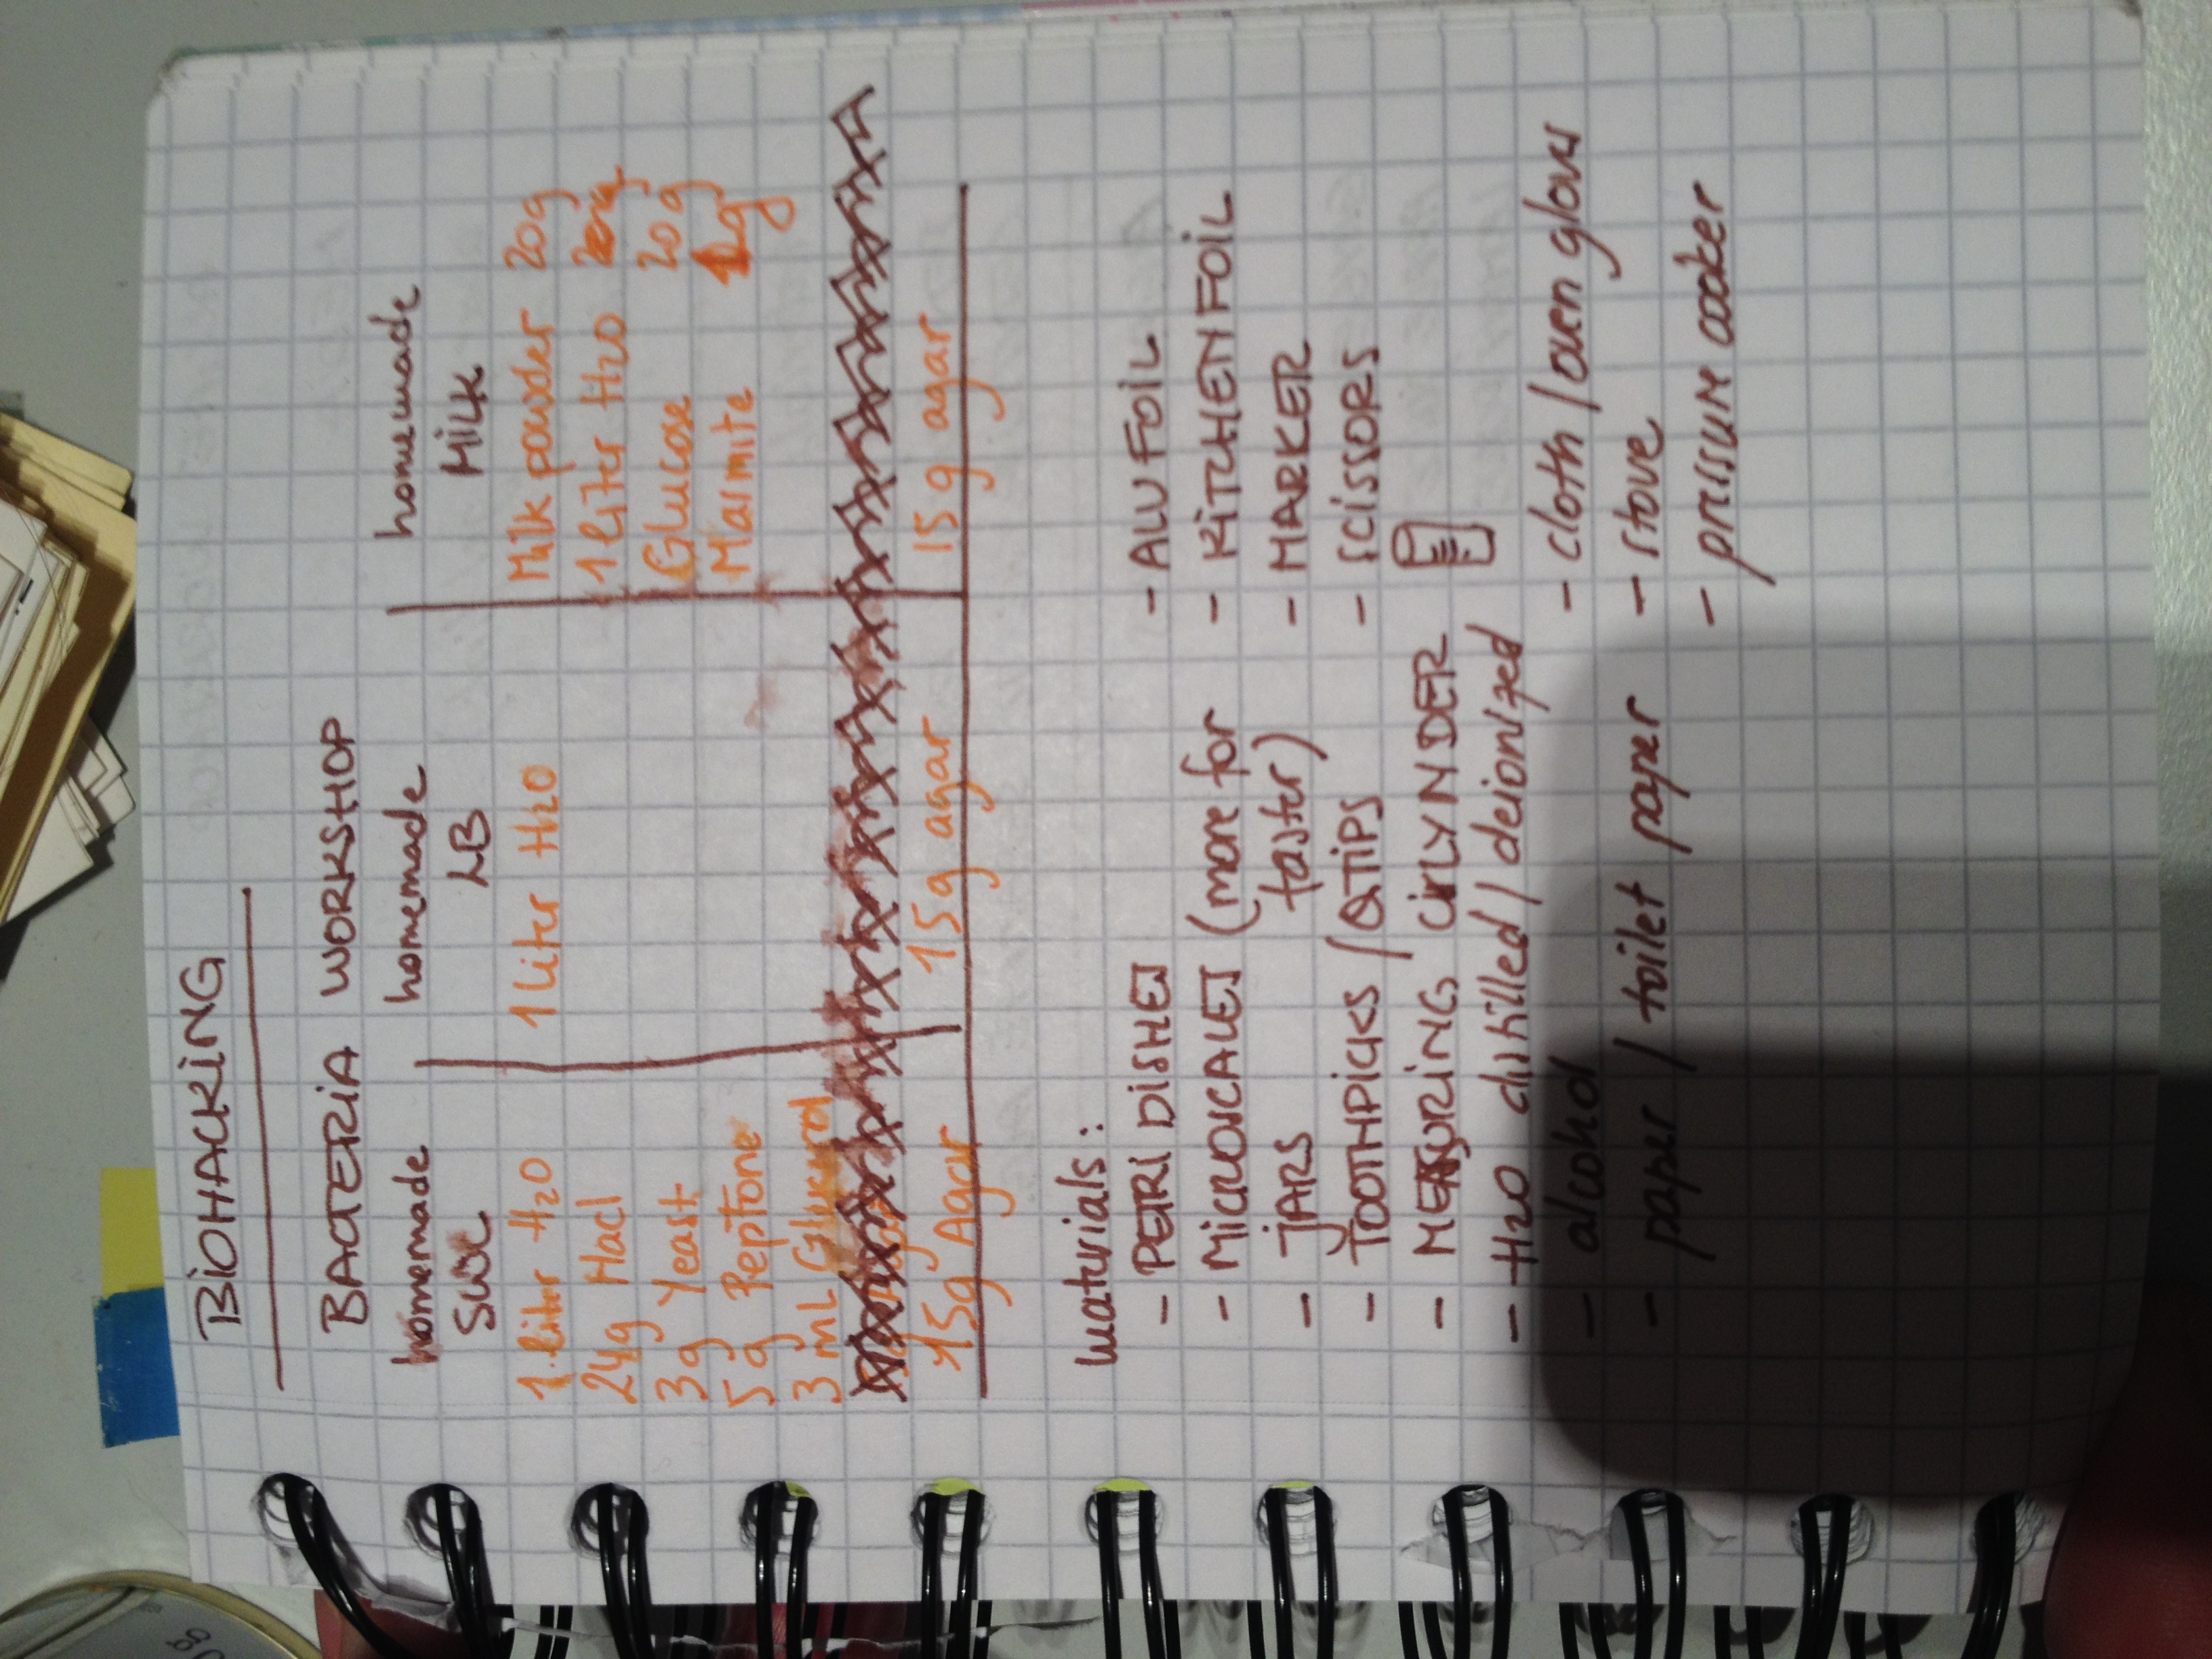 BiOHACKiNG
BACTERiA WORKSHOP
homemade SWC
1 liter H2O
24g Nacl
3g Yeast
5g Peptone
3 mL Glycerol
15g Agar
homemade LB
1 liter H2O
15g agar
homemade MiLK
Milk powder 20g
1 liter H2O
Glucose 20g
Marmite
15 g agar
materials:
- PETRI DiSHES
- MiCROSCALES (more for
faster)
- jARS
- TOOTHPICKS / QTiPS
- MEASURING CYLYNDER
- H2O distilled / deionized
- alcohol
- paper / toilet paper
- ALU FOiL
- KiTCHEN FOiL
- MARKER
- SCiSSORS
- cloth / oven glove
- stove
- pressure cooker